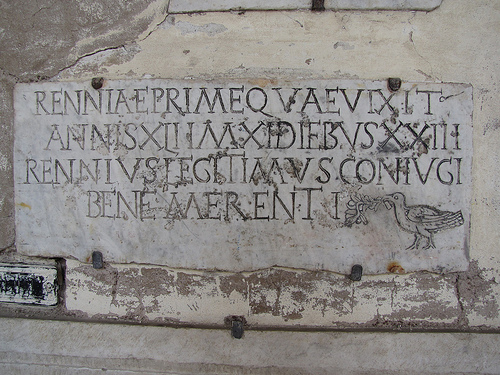 RENNIAEPRIMEQVAEVIXIT
ANNISXLIIMXIDIEBUSXXIII
RENNIVSLEGITIMVSCONIVGI
BENEMERENTI